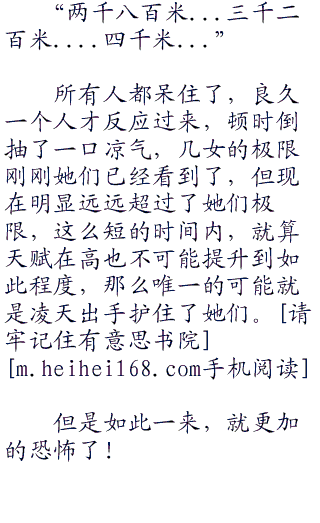 “两千八百米...三千二
百米....四千米...”
所有人都呆住了，良久
一个人才反应过来，顿时倒
抽了一口凉气，几女的极限
刚刚她们已经看到了，但现
在明显远远超过了她们极
限，这么短的时间内，就算
天赋在高也不可能提升到如
此程度，那么唯一的可能就
是凌天出手护住了她们。[请
牢记住有意思书院]
[m.heihei168.com手机阅读]
但是如此一来，就更加
的恐怖了！